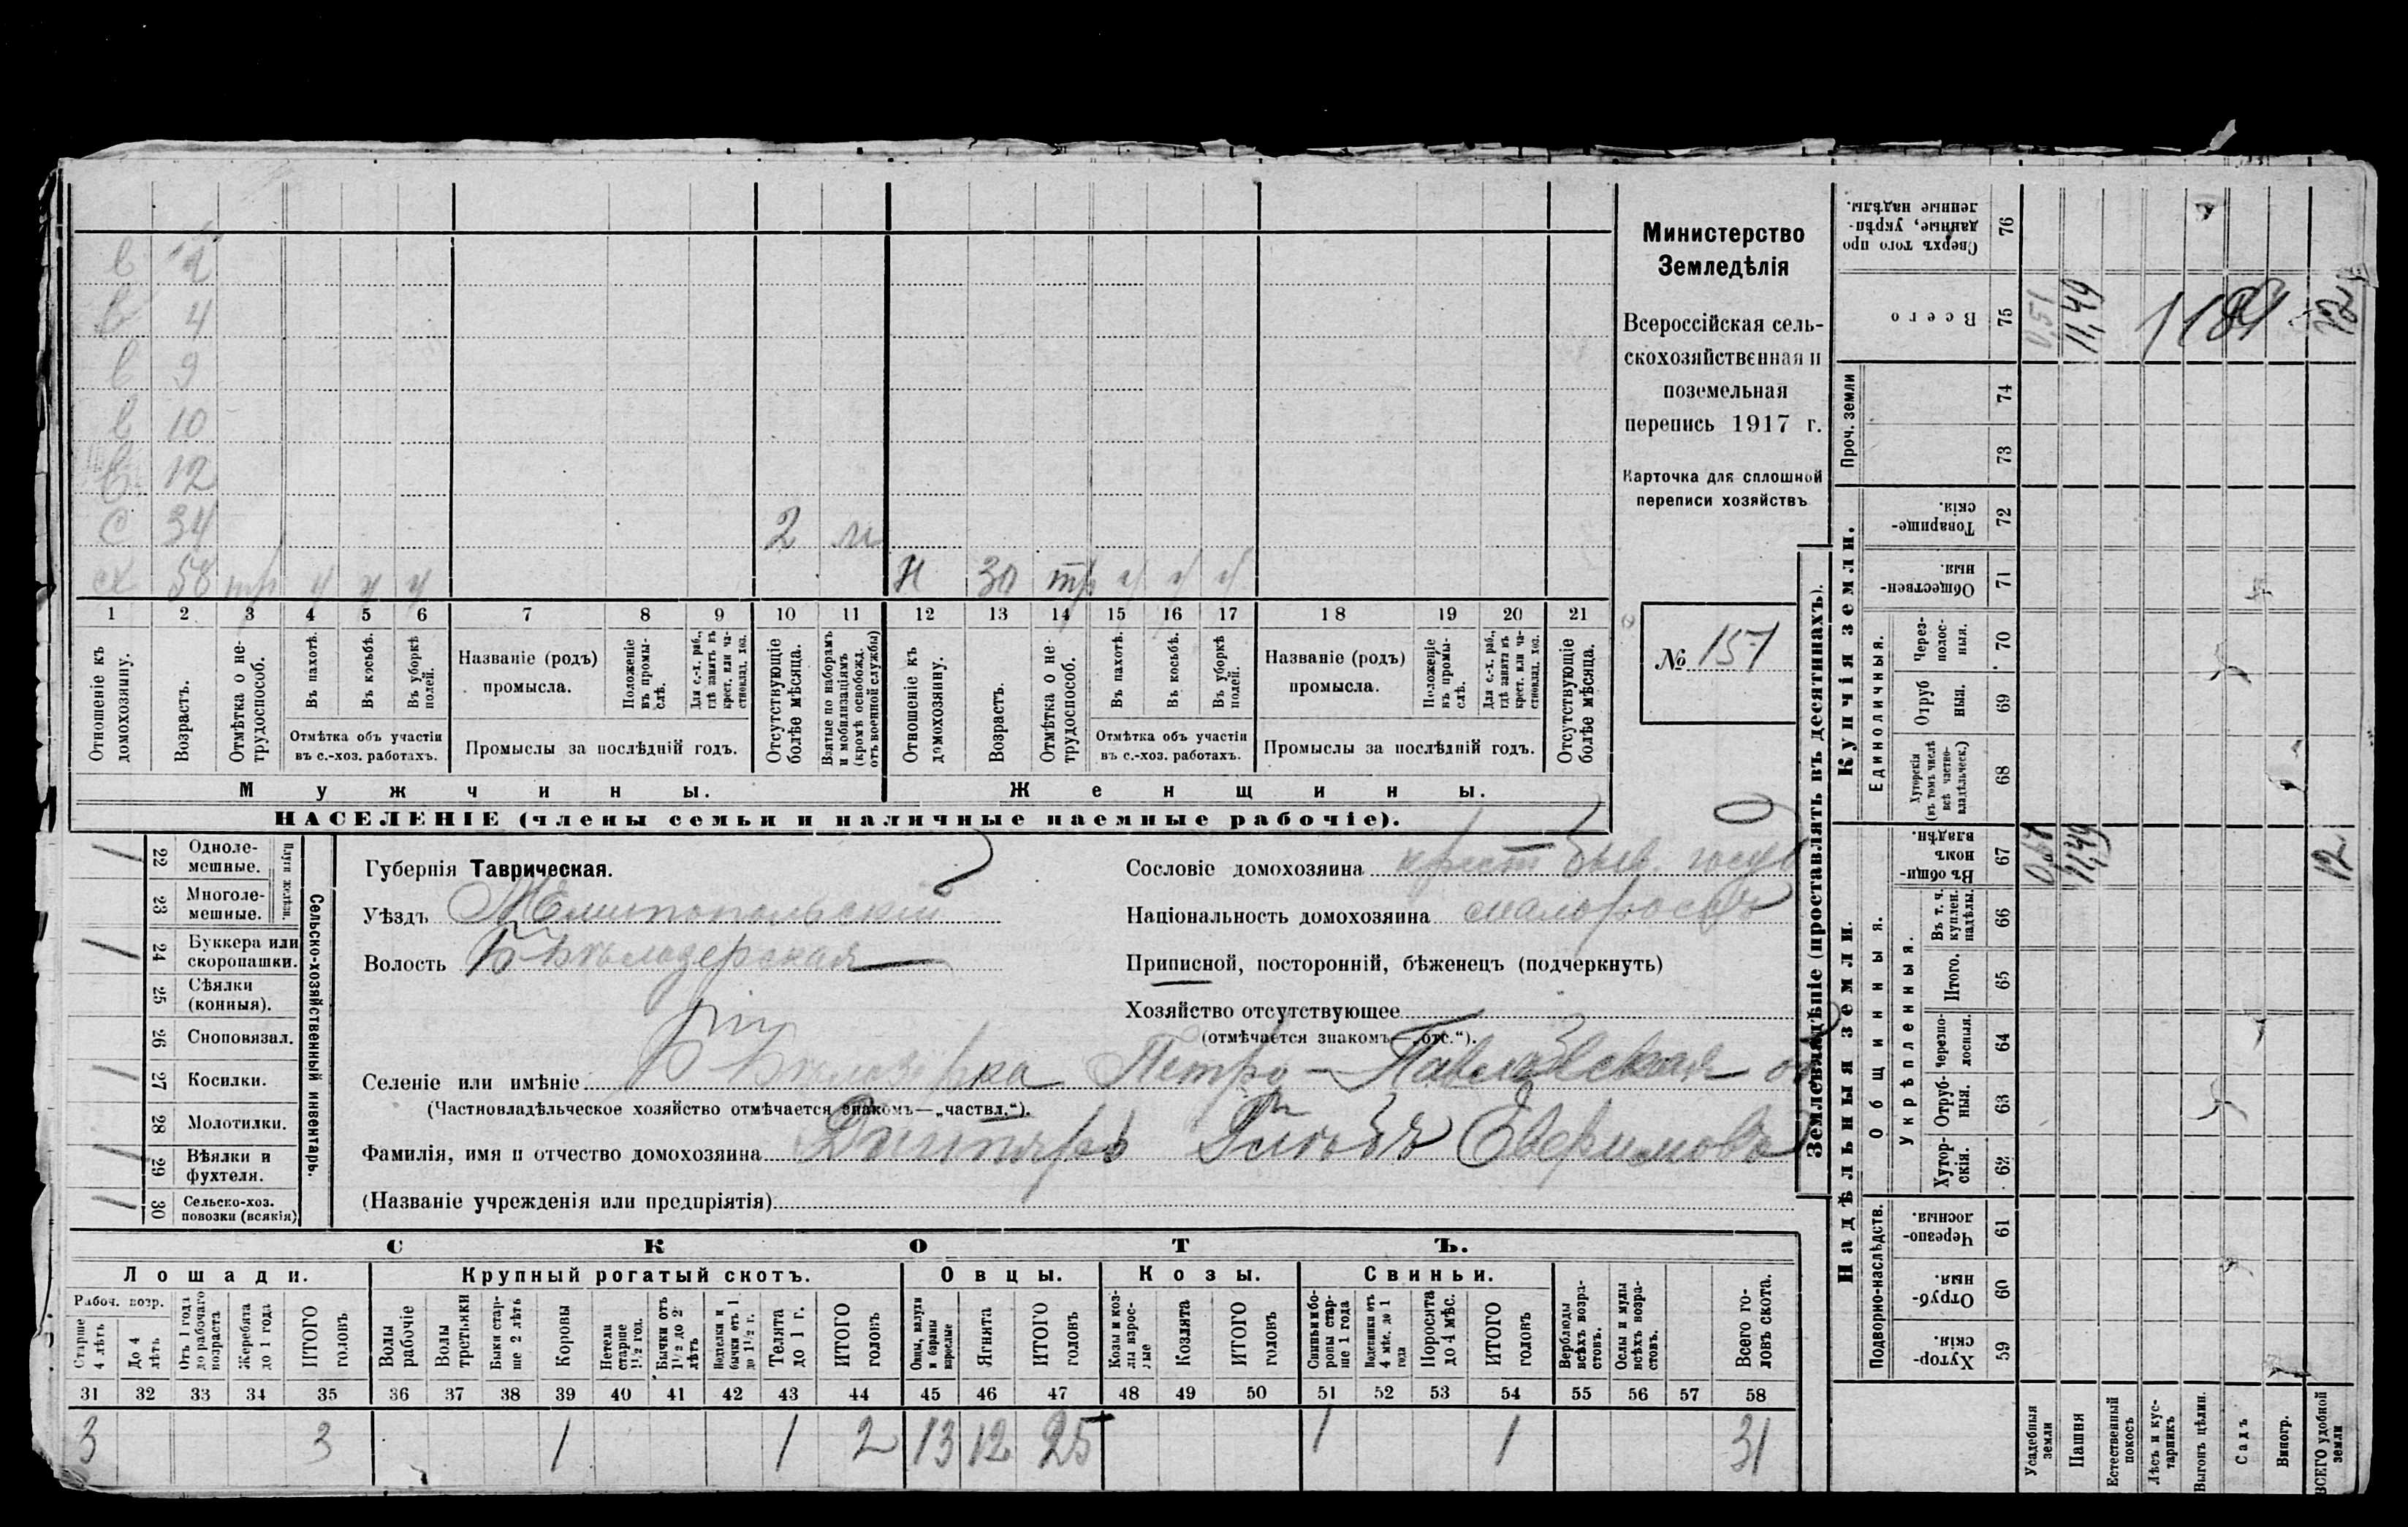 в 2
в 4
в 9
в 10
в 12
с 34 2 м
сх 58 тр ч ч ч н 30 тр ч ч ч
1 2 3 4 5 6 7 8 9 10 11 12 13 14 15 16 17 18 19 20 21
Отношеніе къ домохозяину.
Возрастъ.
Отмѣтка о нетрудоспособ.
Въ пахотѣ.
Въ косьбѣ.
Въ уборкѣ полей.
Отмѣтка объ участіи въ с.-хоз. работахъ.
Названіе (родъ) промысла.
Положеніе въ промыслѣ.
Для с.-х. раб., гдѣ занятъ въ крест. или частновлад. хоз.
Промыслы за послѣдній годъ.
Отсутствующіе болѣе мѣсяца.
Взятые по наборамъ и мобилизаціямъ (кромѣ освобожд. отъ военной службы)
Отношеніе къ домохозяину.
Возрастъ.
Отмѣтка о нетрудоспособ.
Въ пахотѣ.
Въ косьбѣ.
Въ уборкѣ полей.
Отмѣтка объ участіи въ с.-хоз. работахъ.
Названіе (родъ) промысла.
Положеніе въ промыслѣ.
Для с.-х. раб., гдѣ занята въ крест. или частновлад. хоз.
Промыслы за послѣдній годъ.
Отсутствующіе болѣе мѣсяца.
Мужчины. Женщины.
НАСЕЛЕНІЕ (члены семьи и наличные наемные рабочіе).
Министерство
Земледѣлія
Всероссійская сель-
скохозяйственная и
поземельная
перепись 1917 г.
Карточка для сплошной
переписи хозяйствъ
№ 157
Сельско-хозяйственный инвентарь.
Плуги желѣзн.
/ 22 Одноле-мешные.
23 Многоле-мешные.
/ 24 Буккера или скоропашки.
25 Сѣялки (конныя).
26 Сноповязал.
/ 27 Косилки.
28 Молотилки.
/ 29 Вѣялки и фухтели.
/ 30 Сельско-хоз. повозки (всякія)
Губернія Таврическая.
Уѣздъ Мелитопольскій
Волость Б Бѣлозерская
Селеніе или имѣніе Б Бѣлозерка Петро-Павловская
(Частновладѣльческое хозяйство отмѣчается знакомъ—„частвл.“).
Фамилія, имя и отчество домохозяина Глѣбъ Евфимовъ
(Названіе учрежденія или предпріятія)
Сословіе домохозяина крест быв. госуд
Національность домохозяина малороссъ
Приписной, посторонній, бѣженецъ (подчеркнуть)
Хозяйство отсутствующее
(отмѣчается знакомъ—„отс.“).
СКОТЪ.
Лошади. Крупный рогатый скотъ. Овцы. Козы. Свиньи.
Рабоч. возр.
Старше 4 лѣтъ
До 4 лѣтъ
Отъ 1 года до рабочаго возраста
Жеребята до 1 года
ИТОГО головъ
Волы рабочіе
Волы третьяки
Быки старше 2 лѣтъ
Коровы
Нетели старше 1½ год.
Бычки отъ 1½ до 2 лѣтъ
Подтелки и бычки отъ 1 до 1½ г.
Телята до 1 г.
ИТОГО головъ
Овцы, валухи и бараны взрослые
Ягнята
ИТОГО головъ
Козы и козлы взрослые
Козлята
ИТОГО головъ
Свиньи и боровы старше 1 года
Подсвинки отъ 4 мѣс. до 1 года
Поросята до 4 мѣс.
ИТОГО головъ
Верблюды всѣхъ возрастовъ.
Ослы и мулы всѣхъ возрастовъ.
Всего головъ скота.
31 32 33 34 35 36 37 38 39 40 41 42 43 44 45 46 47 48 49 50 51 52 53 54 55 56 57 58
3 3 1 1 2 13 12 25 1 1 31
Землевладѣніе (проставлять въ десятинахъ).
Надѣльныя земли. Купчія земли. Проч. земли
Подворно-наслѣдств.
Общинныя.
Укрѣпленныя.
Единоличныя.
59 Хуторскія.
60 Отрубныя.
61 Черезполосныя.
62 Хуторскія.
63 Отрубныя.
64 Черезполосныя.
65 Итого.
66 Въ т. ч. куплен. надѣлы.
67 Въ общинномъ владѣн.
68 Хуторскія (въ томъ числѣ всѣ частновладѣльческ.)
69 Отрубныя.
70 Черезполосныя.
71 Общественныя.
72 Товарищескія.
73
74
75 Всего
76 Сверхъ того проданные, укрѣпленные надѣлы.
Усадебныя земли 0,51 0,51
Пашня 11,49 11,49
Естественный покосъ
Лѣсъ и кустарникъ
Выгонъ цѣлин.
Садъ
Виногр.
ВСЕГО удобной земли 12 12